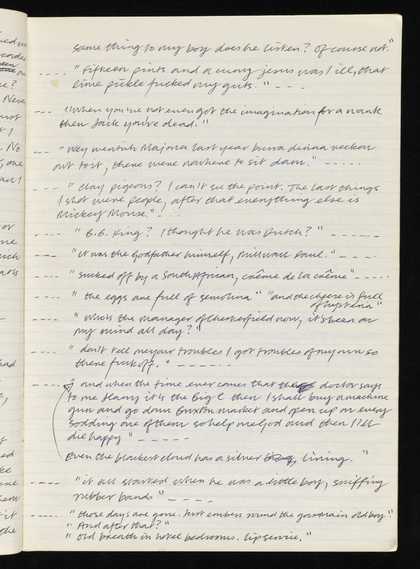 same thing to my boy does he listen? Of course not."
---- "Fifteen pints and a curry jesus was I ill, that
lime pickle fucked my guts." ---
--- "When you've not even got the imagination for a wank
then Jack you're dead."
--- "Hey went to Majorca last year but a
out tort, there were nowhere to sit down." -----
---- "Clay pigeons? I can't see the point. The last things
I shot were people, after that everything else is
Mickey Mouse."
---- "B.B. King? I thought he was Dutch?" -----
---- "it was the Godfather himself, Millwall Paul." ----
---- "sucked off by a South African, crème de la crème" -----
---- "the eggs are full of semolina" "and the cheese is full
of hysteria"
---- "who's the manager of Chesterfield now, it's been on
my mind all day?"
---- "don't tell me your troubles I got troubles of my own so
there fuck off." ------
---- and when the time ever comes that the doctor says
to me Harry it's the Big C then I shall buy a machine
gun and go down Brixton market and open up on every
sodding one of them so help me God and then I'll
die happy" -----
Even the blackest cloud has a silver lining."
---- "it all started when he was a little boy, sniffing
rubber bands" ----
---- "those days are gone. Just embers round the now old boy."
"And after that?"
"Old breath in hotel bedrooms. Lip service."